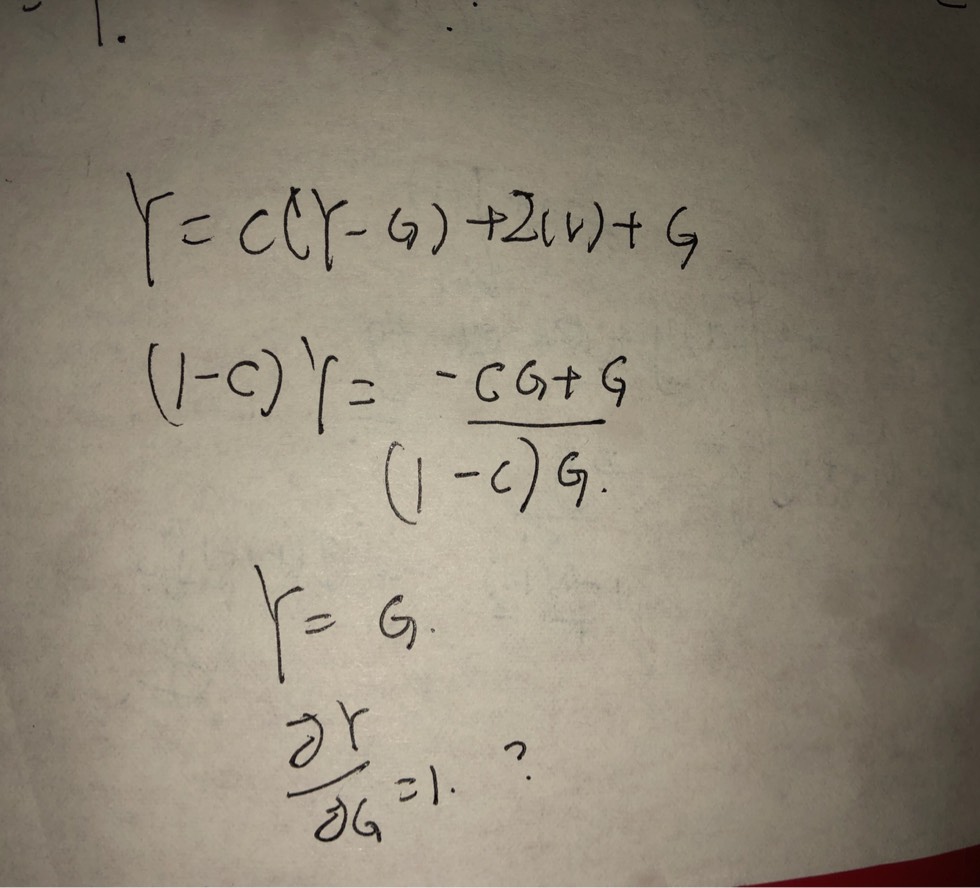 1.
Y = C(Y-G) + I(r) + G
(1-C) Y = -CG + G
(1-C) G.
Y = G.
∂Y/∂G = 1. ?